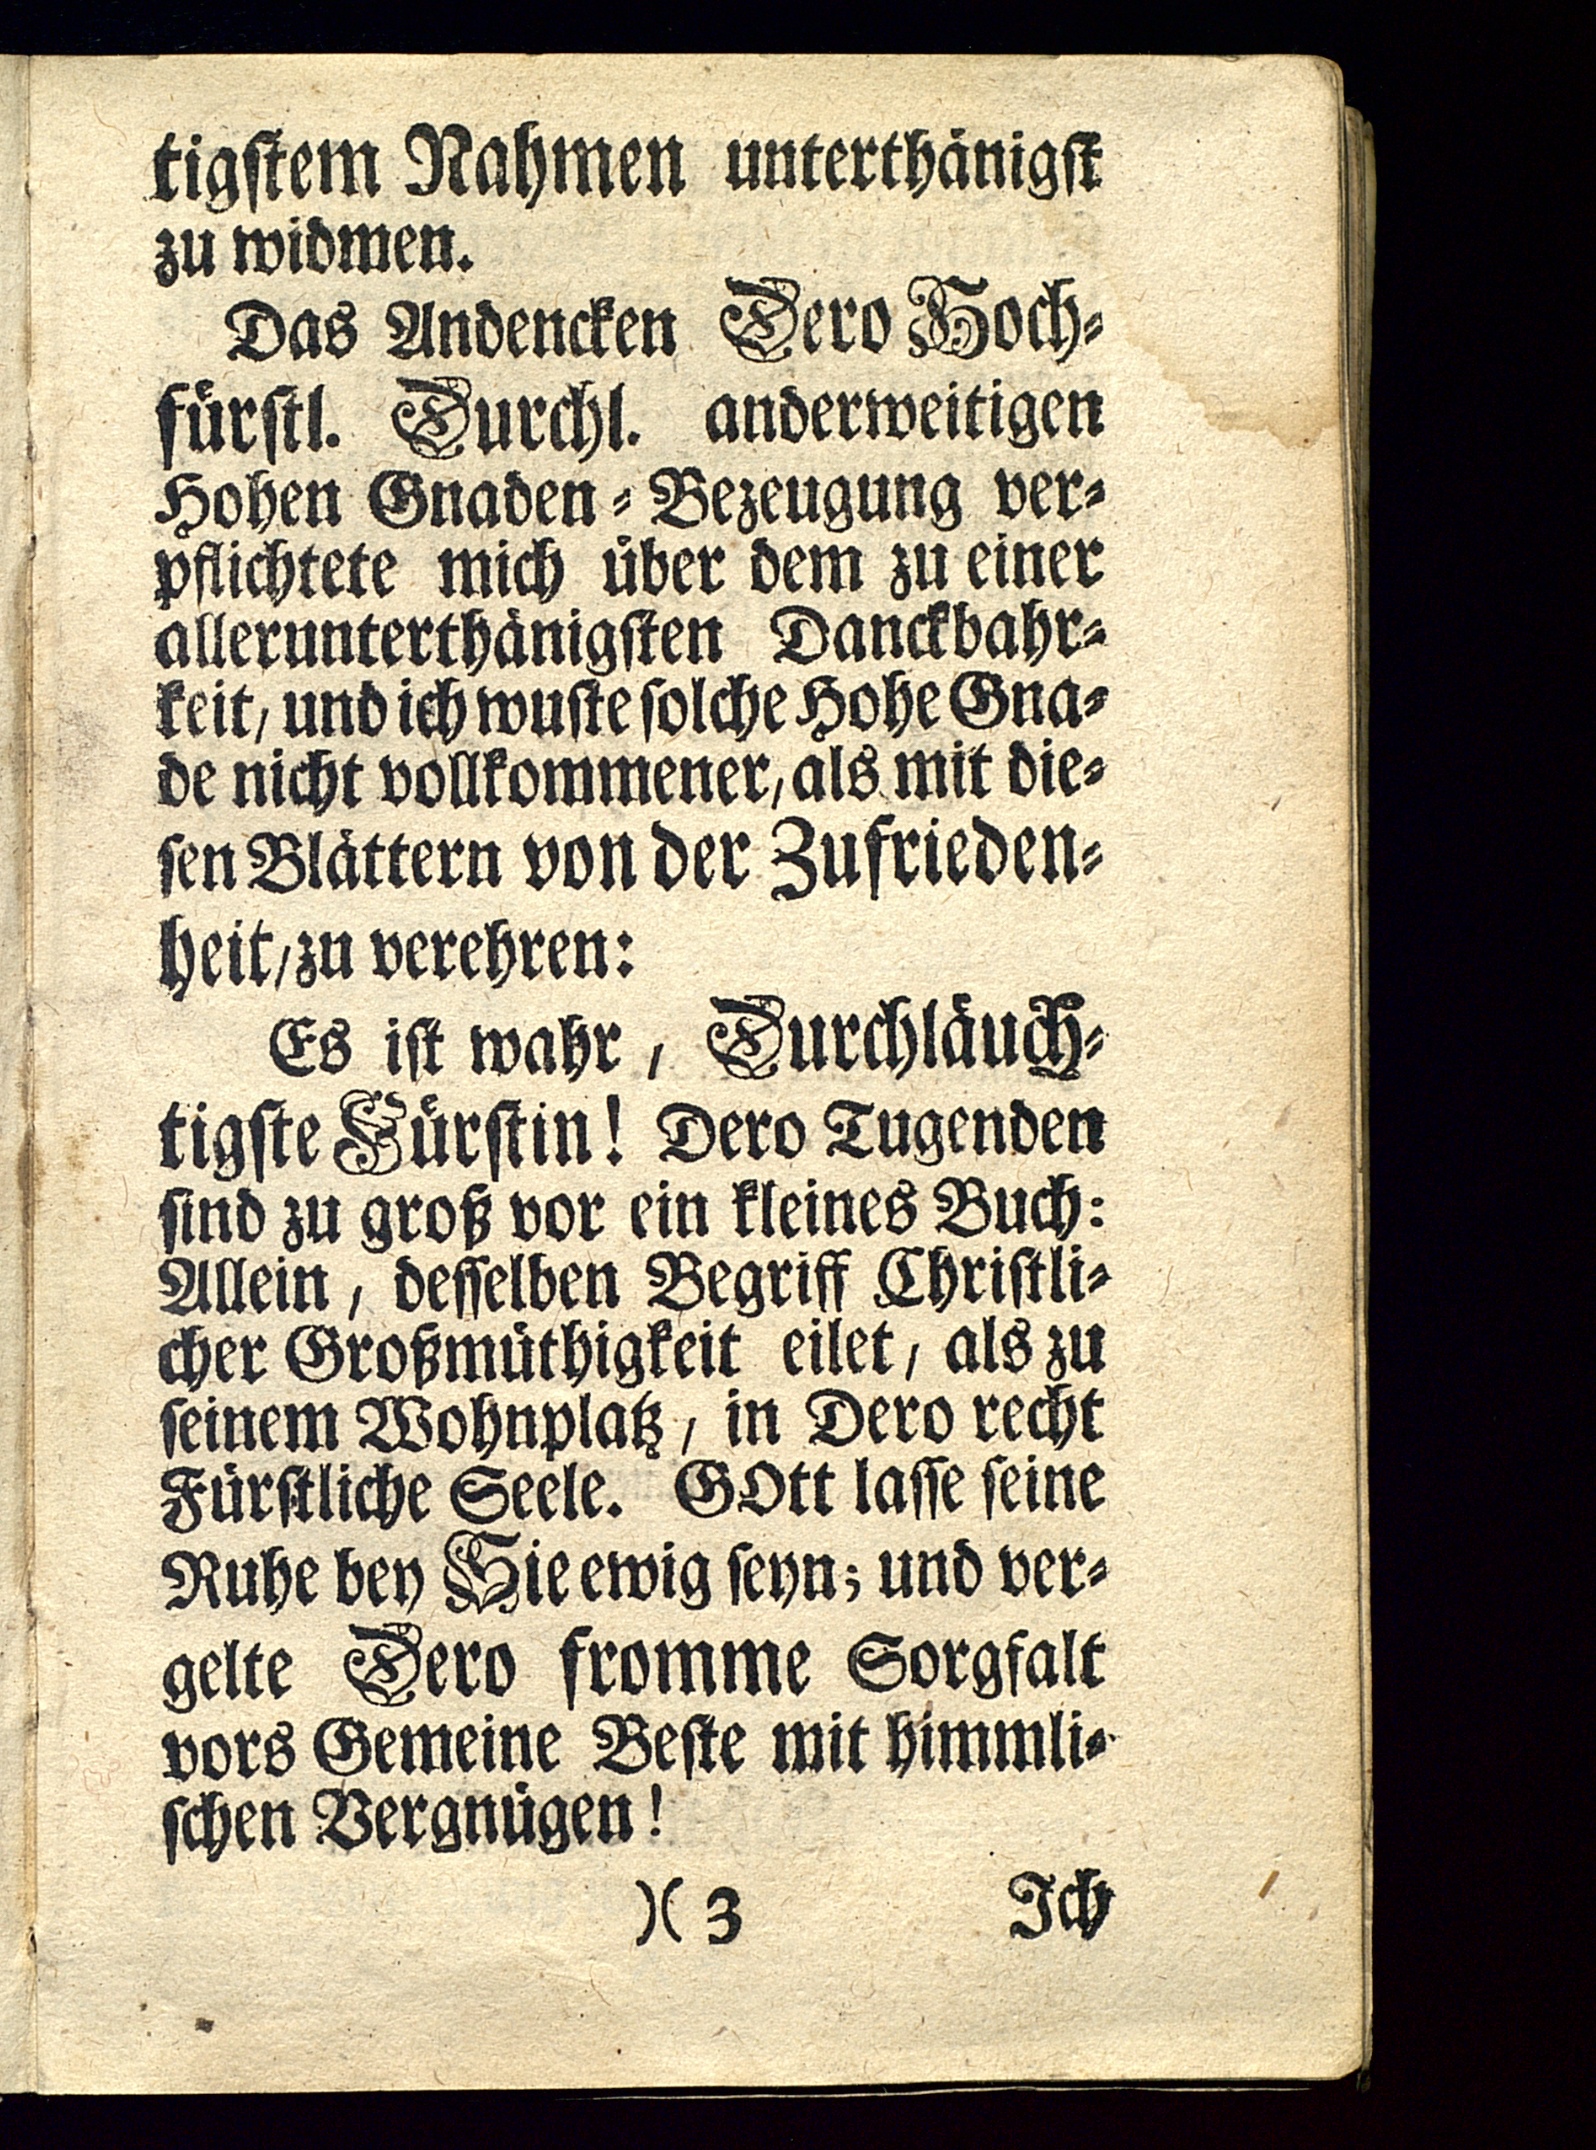 tigſtem Nahmen unterthänigſt
zu widmen.
Das Andencken Dero Hoch⸗
fürſtl. Durchl. anderweitigen
Hohen Gnaden⸗Bezeugung ver⸗
pflichtete mich über dem zu einer
allerunterthänigſten Danckbahr⸗
keit, und ich wuſte ſolche Hohe Gna⸗
de nicht vollkommener, als mit die⸗
ſen Blättern von der Zufrieden⸗
heit, zu verehren:
Es iſt wahr, Durchläuch⸗
tigſte Fürſtin! Dero Tugenden
ſind zu groß vor ein kleines Buch:
Allein, deſſelben Begriff Chriſtli⸗
cher Großmüthigkeit eilet, als zu
ſeinem Wohnplatz, in Dero recht
Fürſtliche Seele. GOtt laſſe ſeine
Ruhe bey Hie ewig ſeyn; und ver⸗
gelte Dero fromme Sorgfalt
vors Gemeine Beſte mit himmli⸗
ſchen Vergnügen!
)( 3 Ich